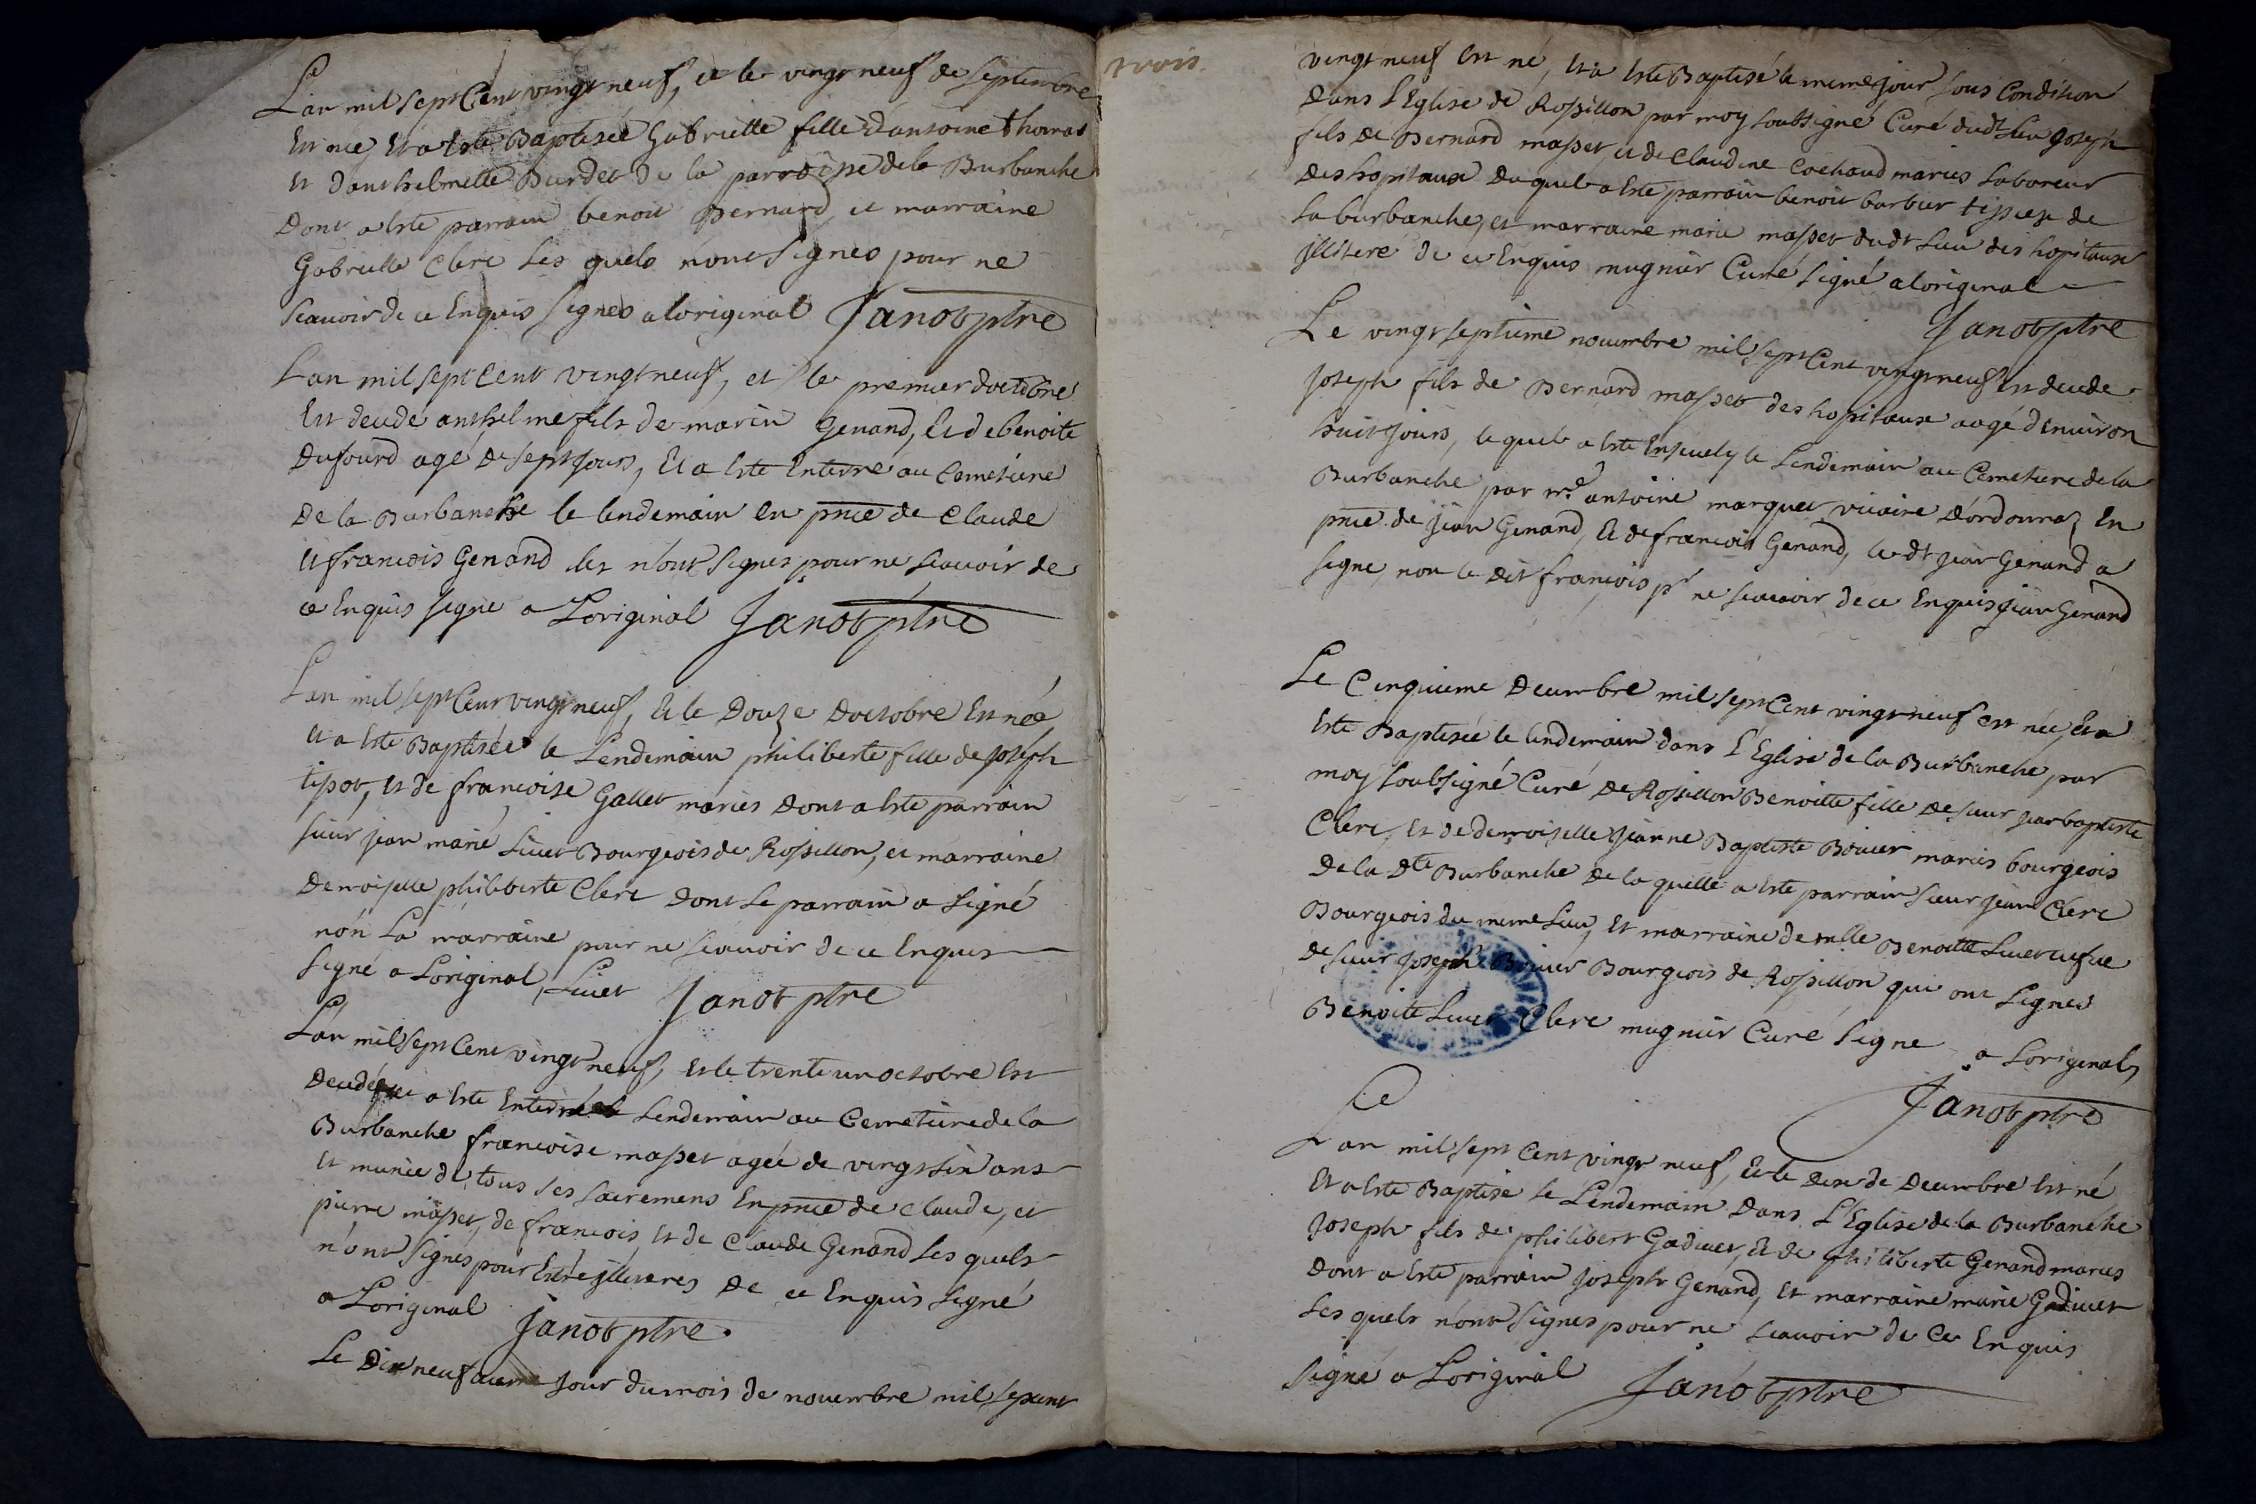 L'an mil sept Cent vingt neuf, et le vingt neuf de septembre
Est née, Et a Esté Baptisée Gabrielle fille d'antoine thomas
Et d'anthelmette Burdet de la parroisse de la Burbanche
Dont a Esté parrain benoit Bernard, et marraine
Gabrielle Clerc Les quels n'ont signés pour ne
scauoir de ce Enquis signés a loriginal Janot ptre
L'an mil sept Cent vingt neuf, et le premier d'octobre
Est decedé anthelme fils de marin Genand, Et de benoite
Dufourd agé de sept jours, Et a Esté Enterré au Cemetiere
De la Burbanche le lendemain En pnce de Claude
Et francois Genand les n'ont signes pour ne scauoir de
ce Enquis signé a L'original Janot ptre
L'an mil sept Cent vingt neuf, Et le Douze D'octobre Est née
Et a Esté Baptisée le Lendemain philiberte fille de Joseph
tipot, Et de francoise Gallet mariés Dont a Esté parrain
sieur jean marie Liuet Bourgeois de Rossillon, et marraine
Demoiselle philiberte Clerc Dont le parrain a signé
non La marraine pour ne scauoir de ce Enquis
signé a L'original, Liuet Janot ptre
L'an mil sept Cent vingt neuf, Et le trente un octobre Est
Decedée a Esté Enterrée Lendemain au Cemetiere de la
Burbanche francoise masset agée de vingt six ans
Et munie de tous ses sacremens En pnce de Claude, et
pierre masset, de francois Et de Claude Genand Les quels
n'ont signés pour Estre jlliteres De ce Enquis signé
a L'original Janot ptre.
Le Dixneufuieme jour du mois de nouembre mil sept cent
trois.
vingt neuf Est né, Et a Esté Baptisé le meme jour sous Condition
Dans L'Eglise de Rossillon par moy soubsigné Curé dudt lieu Joseph
fils De Bernard masset, et de Claudine Cochaud mariés Laboreur
Des hopitaux Duquel a Esté parrain benoit barbier tissier de
La burbanche, et marraine marie masset dudt Lieu des hopitaux
jllitere de ce Enquis mugnier Curé signé a loriginal
Janot ptre
Le vingt septieme nouembre mil sept Cent vingt neuf Est decedé
Joseph fils de Bernard masset des hopitaux aagé d'Enuiron
huit jours, le quel a Esté Enseuely le Lendemain au Cemetiere de la
Burbanche par mre antoine marquet vicaire d'ordonnaz En
pnce de jean Genand, Et de francois Genand, le dt jean Genand a
signé, non le Dit francois pr ne scauoir de ce Enquis jean Genand
Le Cinquieme Decembre mil sept Cent vingt neuf est née, Et a
Esté Baptisée le lendemain dans L'Eglise de la Burbanche par
moy soubsigné Curé De Rossillon Benoitte fille De sieur jean baptiste
Clerc, Et de demoiselle Jeanne Baptiste Bouier mariés bourgeois
De la Dte Burbanche De la quelle a Esté parrain sieur jean Clerc
Bourgeois du meme Lieu, Et marraine demlle Benoitte Liuet ueufue
de sieur Joseph Bouier Bourgeois de Rossillon qui ont signés
Benoite Liuet Clerc mugnier Curé signé a L'original,
Janot ptre
Le
L'an mil sept Cent vingt neuf, Et le Dix de Decembre Est né
Et a Esté Baptisé le Lendemain Dans L'Eglise de la Burbanche
Joseph fils de philibert Gadiuet, Et de philiberte Genand mariés
Dont a Esté parrain Joseph Genand, Et marraine marie Gadiuet
Les quels n'ont signes pour ne scauoir de Ce Enquis
signé a L'original Janot ptre